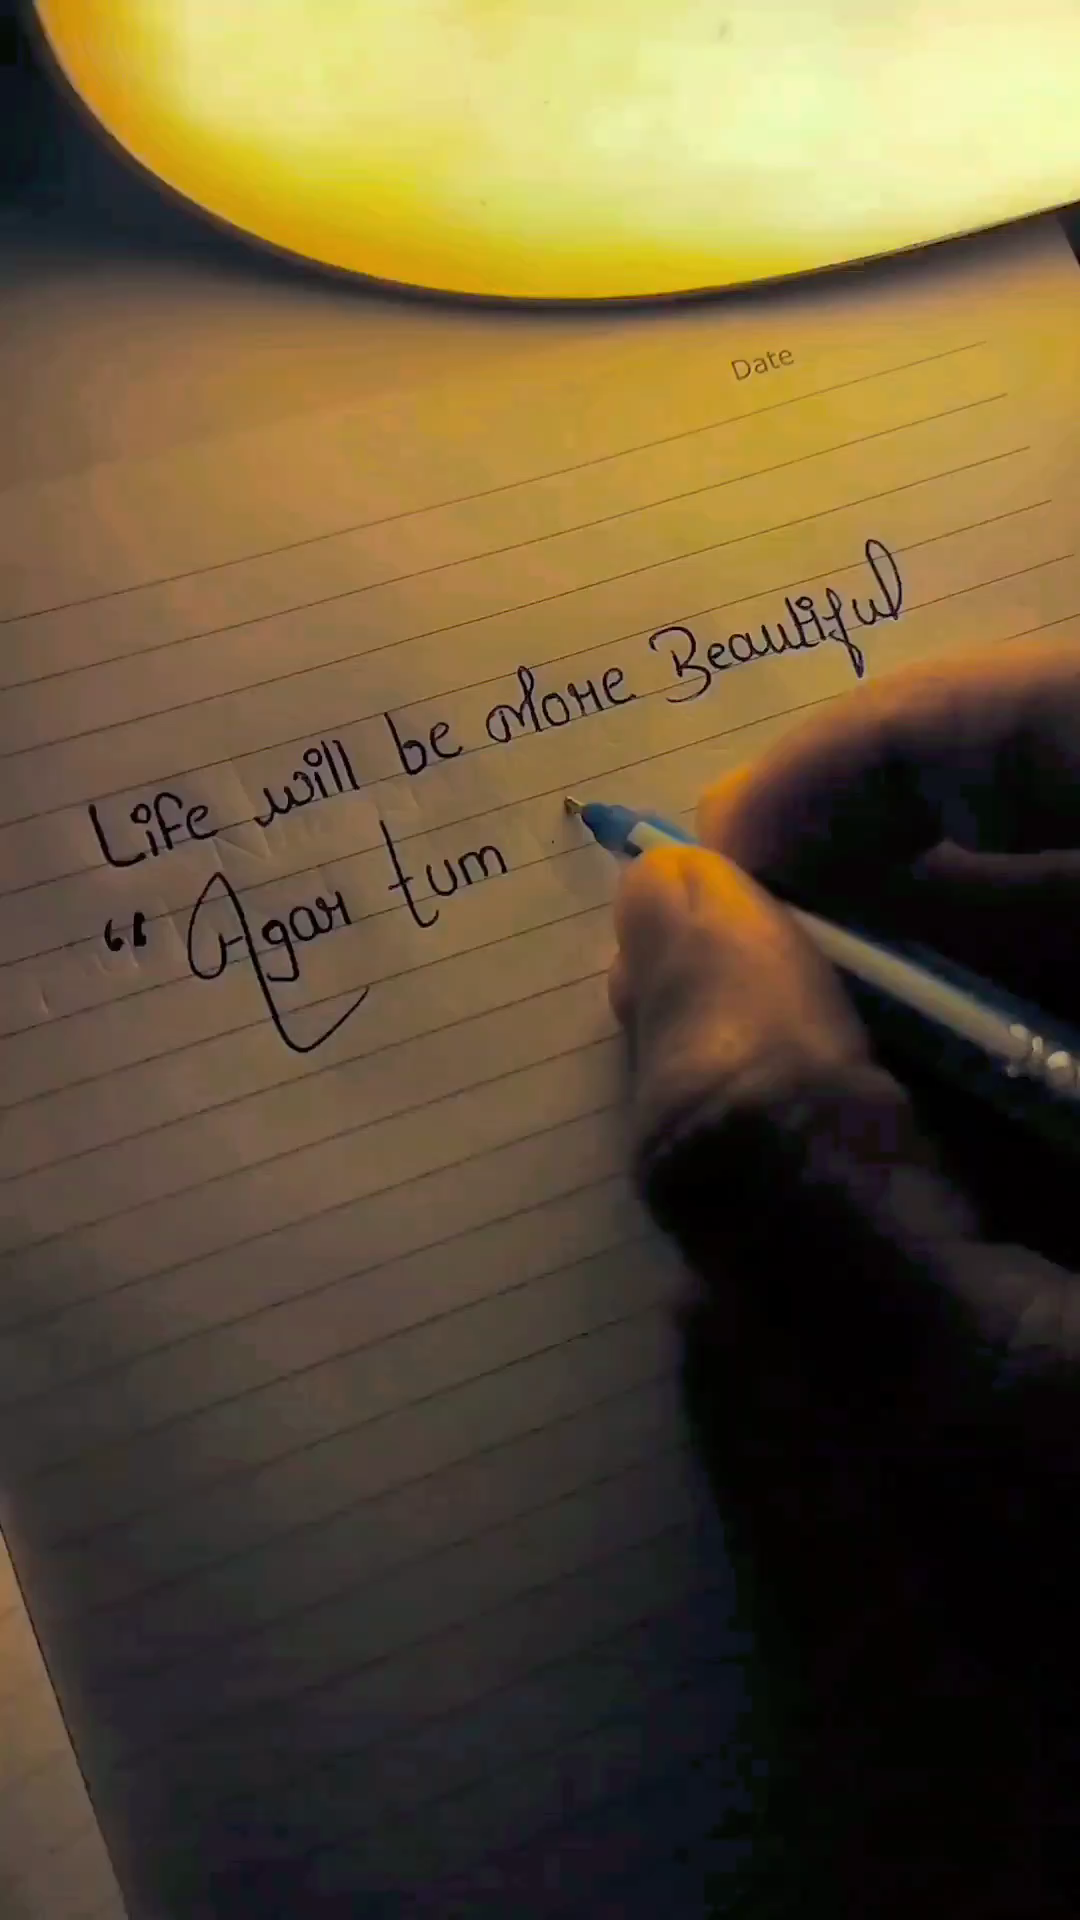 Date
Life will be More Beautiful
“ Agar tum